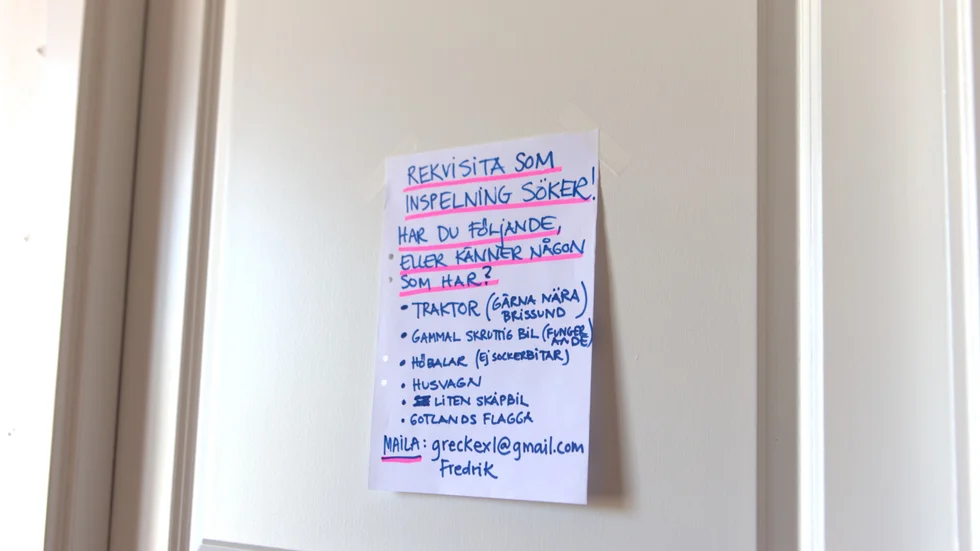 REKVISITA SOM
INSPELNING SÖKER!
HAR DU FÖLJANDE,
ELLER KÄNNER NÅGON
SOM HAR?
• TRAKTOR (GÄRNA NÄRA
BRISSUND)
• GAMMAL SKRUTTIG BIL (FUNGER
ANDE)
• HÖBALAR (EJ SOCKERBITAR)
• HUSVAGN
• LITEN SKÅPBIL
• GOTLANDS FLAGGA
MAILA: greckexl@gmail.com
Fredrik